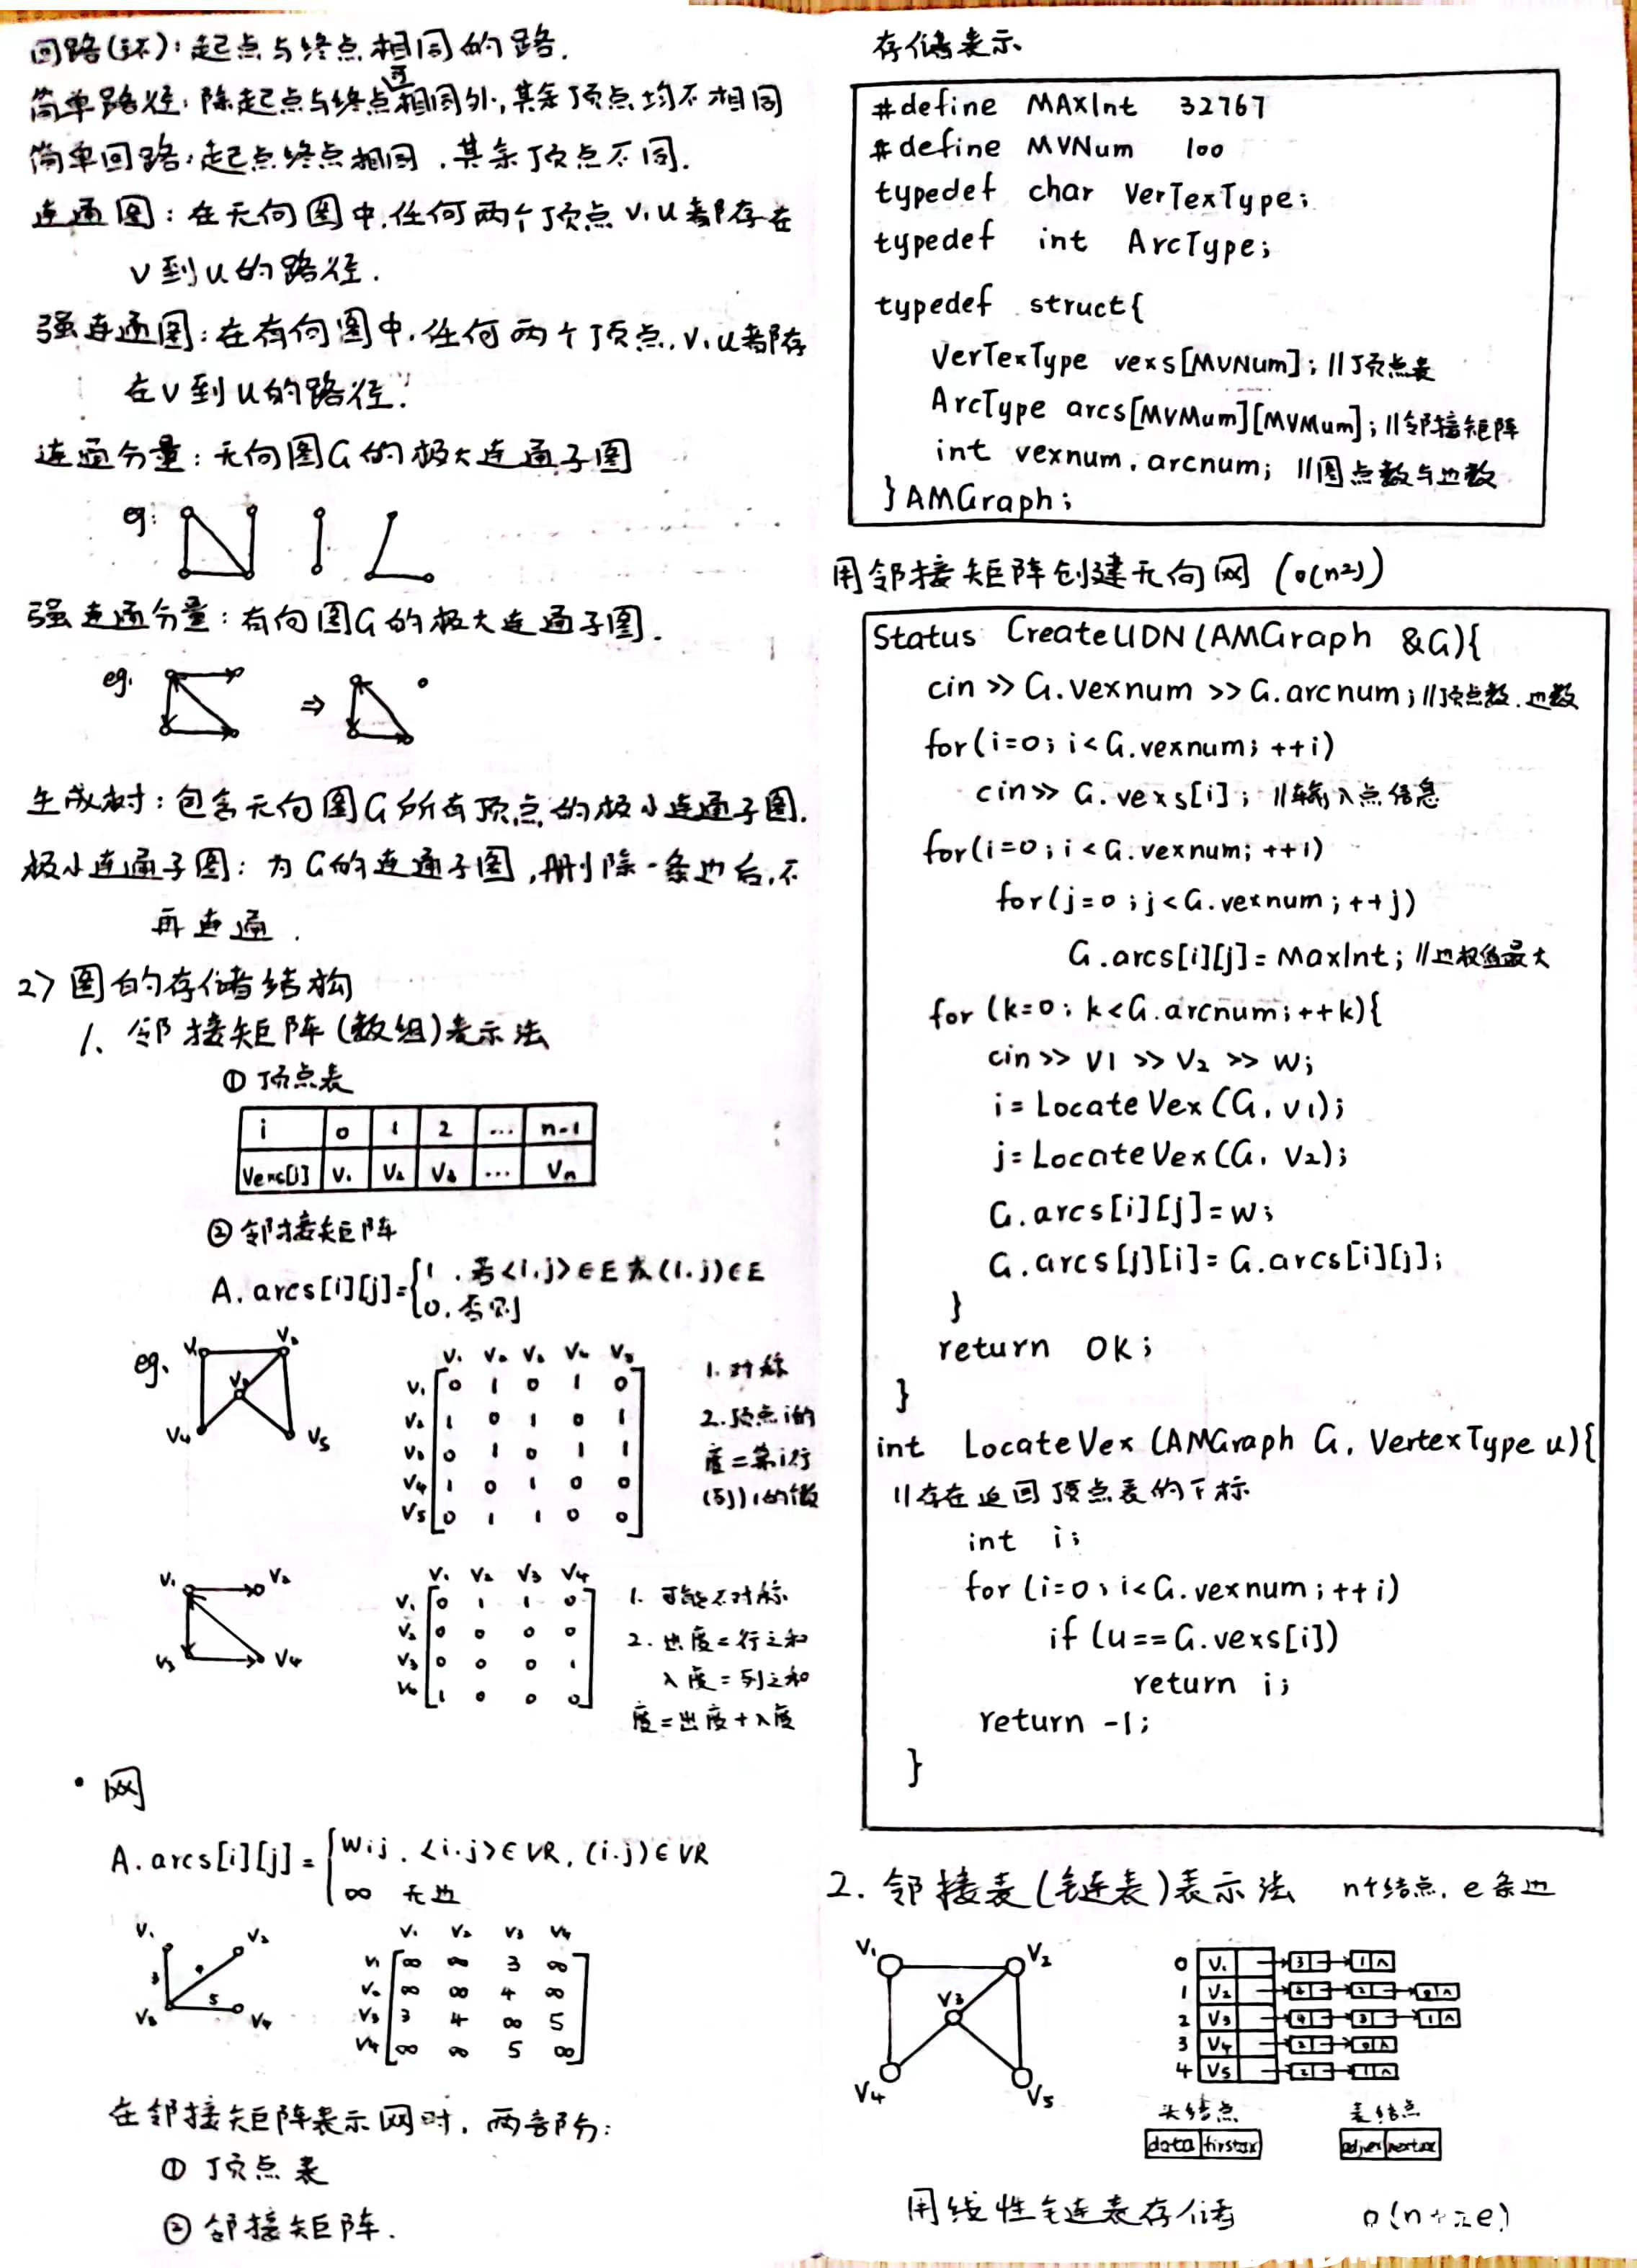 回路(环)：起点与终点相同的路.
可
简单路径：除起点与终点相同外,其余顶点均不相同
简单回路：起点终点相同,其余顶点不同.
连通图：在无向图中,任何两个顶点v,u都存在
v到u的路径.
强连通图：在有向图中,任何两个顶点,v,u都存
在v到u的路径.
连通分量：无向图G的极大连通子图
eg:
强连通分量：有向图G的极大连通子图.
eg. ⇒
生成树：包含无向图G所有顶点的极小连通子图.
极小连通子图：为G的连通子图,删除一条边后,不
再连通.
2> 图的存储结构
1. 邻接矩阵(数组)表示法
① 顶点表
i 0 1 2 ... n-1
Vexs[i] V1 V2 V3 ... Vn
② 邻接矩阵
A.arcs[i][j]={1 . 若<i,j>∈E 或(i,j)∈E
0. 否则
eg. V1 V2 V3 V4 V5
V1 V2 V3 V4 V5
V1 0 1 0 1 0
V2 1 0 1 0 1
V3 0 1 0 1 1
V4 1 0 1 0 0
V5 0 1 1 0 0
1. 对称
2. 顶点i的
度=第i行
(列)1的个数
V1 V2 V3 V4
V1 V2 V3 V4
V1 0 1 1 0
V2 0 0 0 0
V3 0 0 0 1
V4 1 0 0 0
1. 可能不对称
2. 出度=行之和
入度=列之和
度=出度+入度
· 网
A.arcs[i][j]={Wij . <i.j>∈VR, (i.j)∈VR
∞ 无边
V1 V2 V3 V4 3 4 5
V1 V2 V3 V4
V1 ∞ ∞ 3 ∞
V2 ∞ ∞ 4 ∞
V3 3 4 ∞ 5
V4 ∞ ∞ 5 ∞
在邻接矩阵表示网时, 两部分：
① 顶点表
② 邻接矩阵.
存储表示
#define MAxInt 32767
#define MVNum 100
typedef char VerTexType;
typedef int ArcType;
typedef struct{
VerTexType vexs[MVNum]; //顶点表
ArcType arcs[MVMum][MVMum]; //邻接矩阵
int vexnum, arcnum; //图点数与边数
}AMGraph;
用邻接矩阵创建无向网 (o(n2))
Status CreateUDN(AMGraph &G){
cin >> G.vexnum >> G.arcnum; //顶点数.边数
for(i=0; i<G.vexnum; ++i)
cin>> G.vexs[i]; //输入点信息
for(i=0; i<G.vexnum; ++i)
for(j=0; j<G.vexnum; ++j)
G.arcs[i][j]= MaxInt; //边权值最大
for (k=0; k<G.arcnum; ++k){
cin>> V1 >> V2 >> W;
i= LocateVex (G, V1);
j= LocateVex(G, V2);
G.arcs[i][j]=W;
G.arcs[j][i]= G.arcs[i][j];
}
return OK;
}
int LocateVex (AMGraph G, VertexType u){
//存在返回顶点表的下标
int i;
for (i=0; i<G.vexnum; ++i)
if (u==G.vexs[i])
return i;
return -1;
}
2. 邻接表(链表)表示法 n个结点, e条边
V1 V2 V3 V4 V5
0 V1 3 1 ∧
1 V2 4 2 0 ∧
2 V3 4 3 1 ∧
3 V4 2 0 ∧
4 V5 2 1 ∧
头结点 表结点
data
用线性链表存储 o(n+2e)